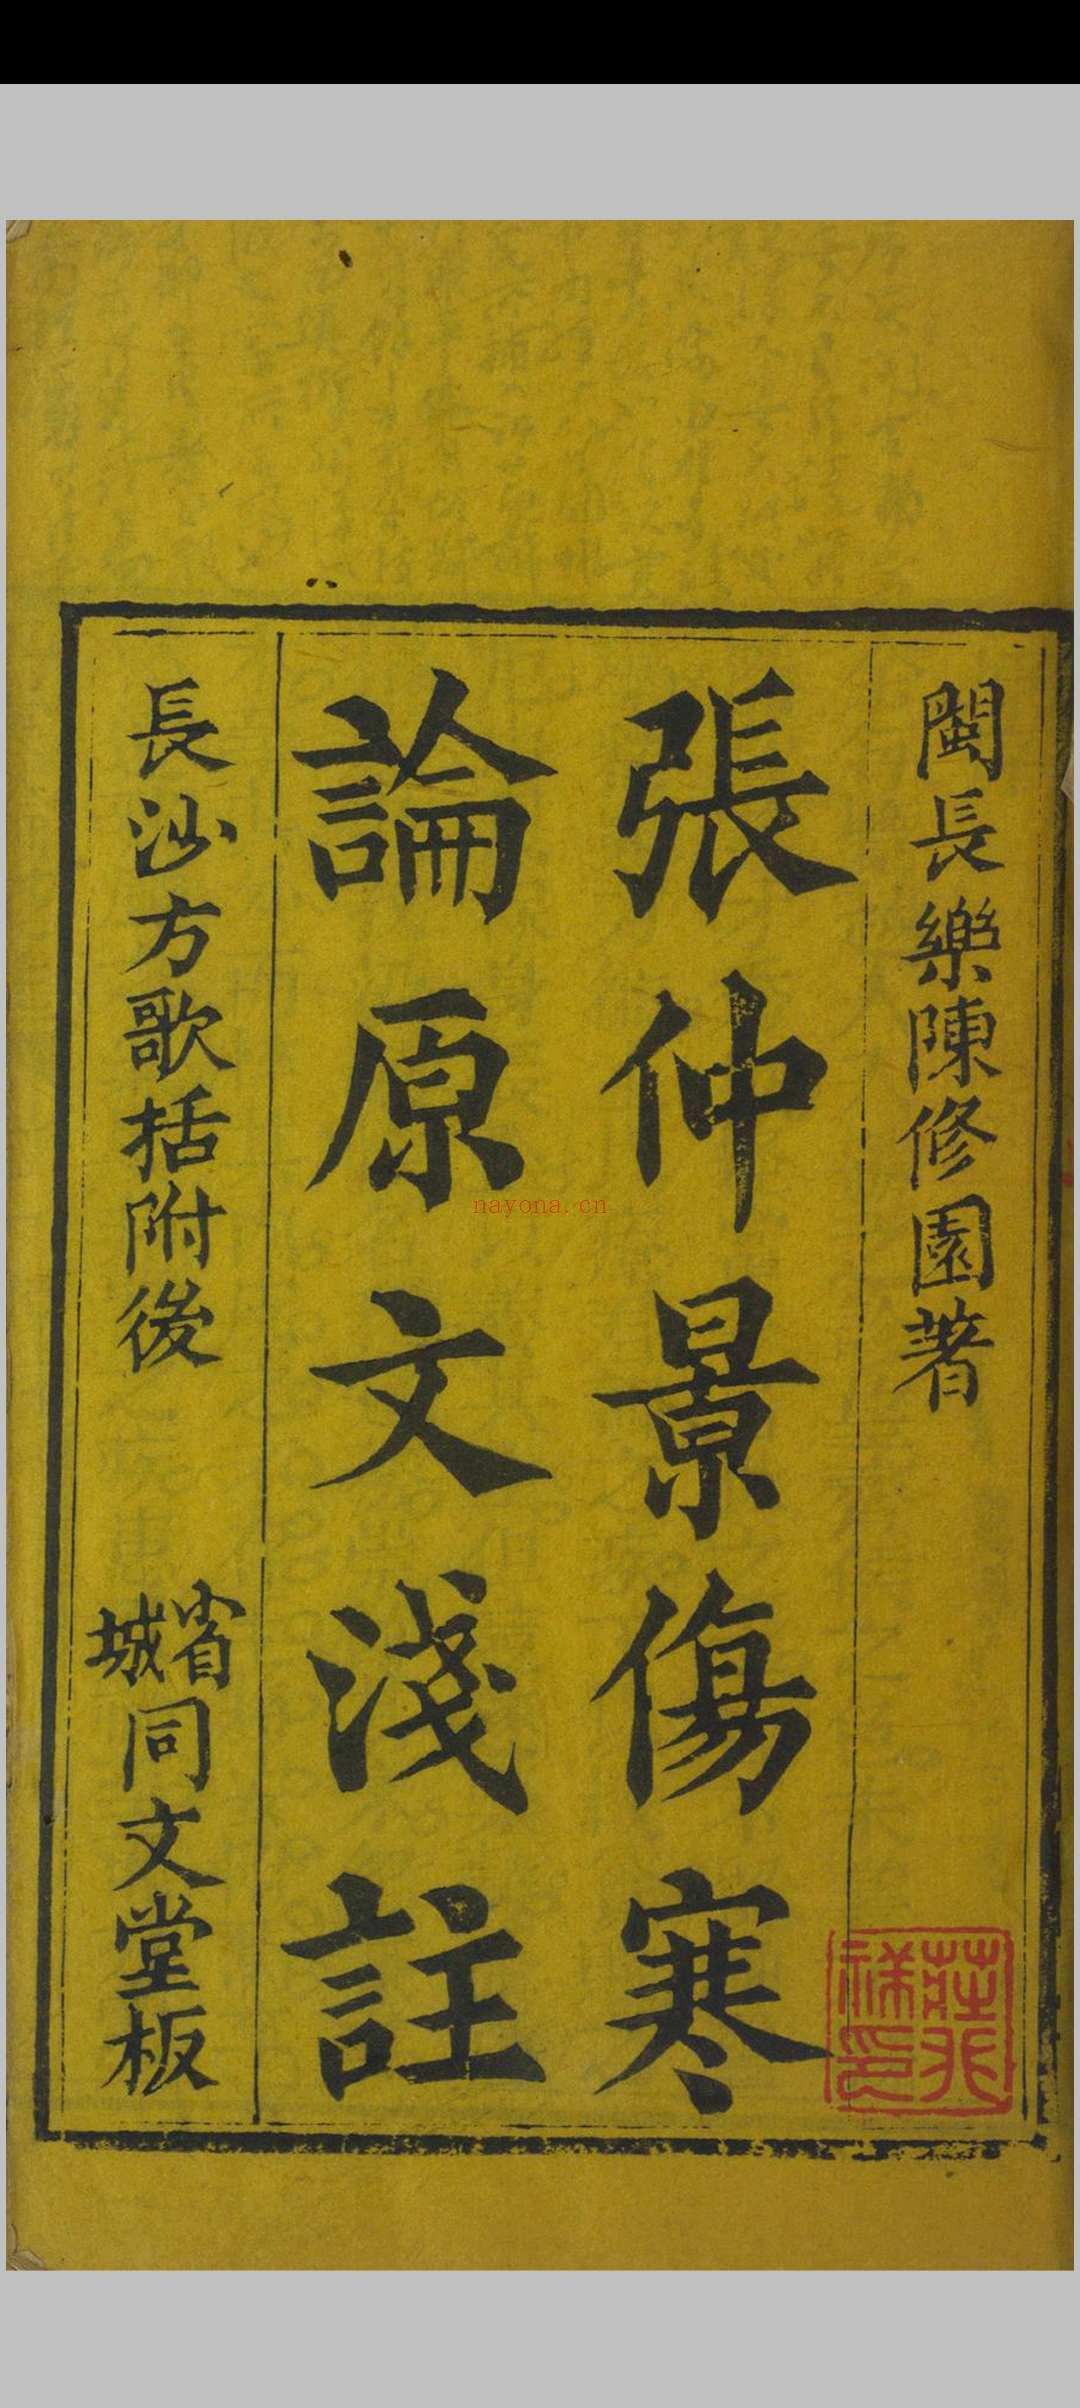 閩長樂陳修園著
張仲景傷寒
論原文淺註
長沙方歌括附後
省城同文堂板
nayona.cn